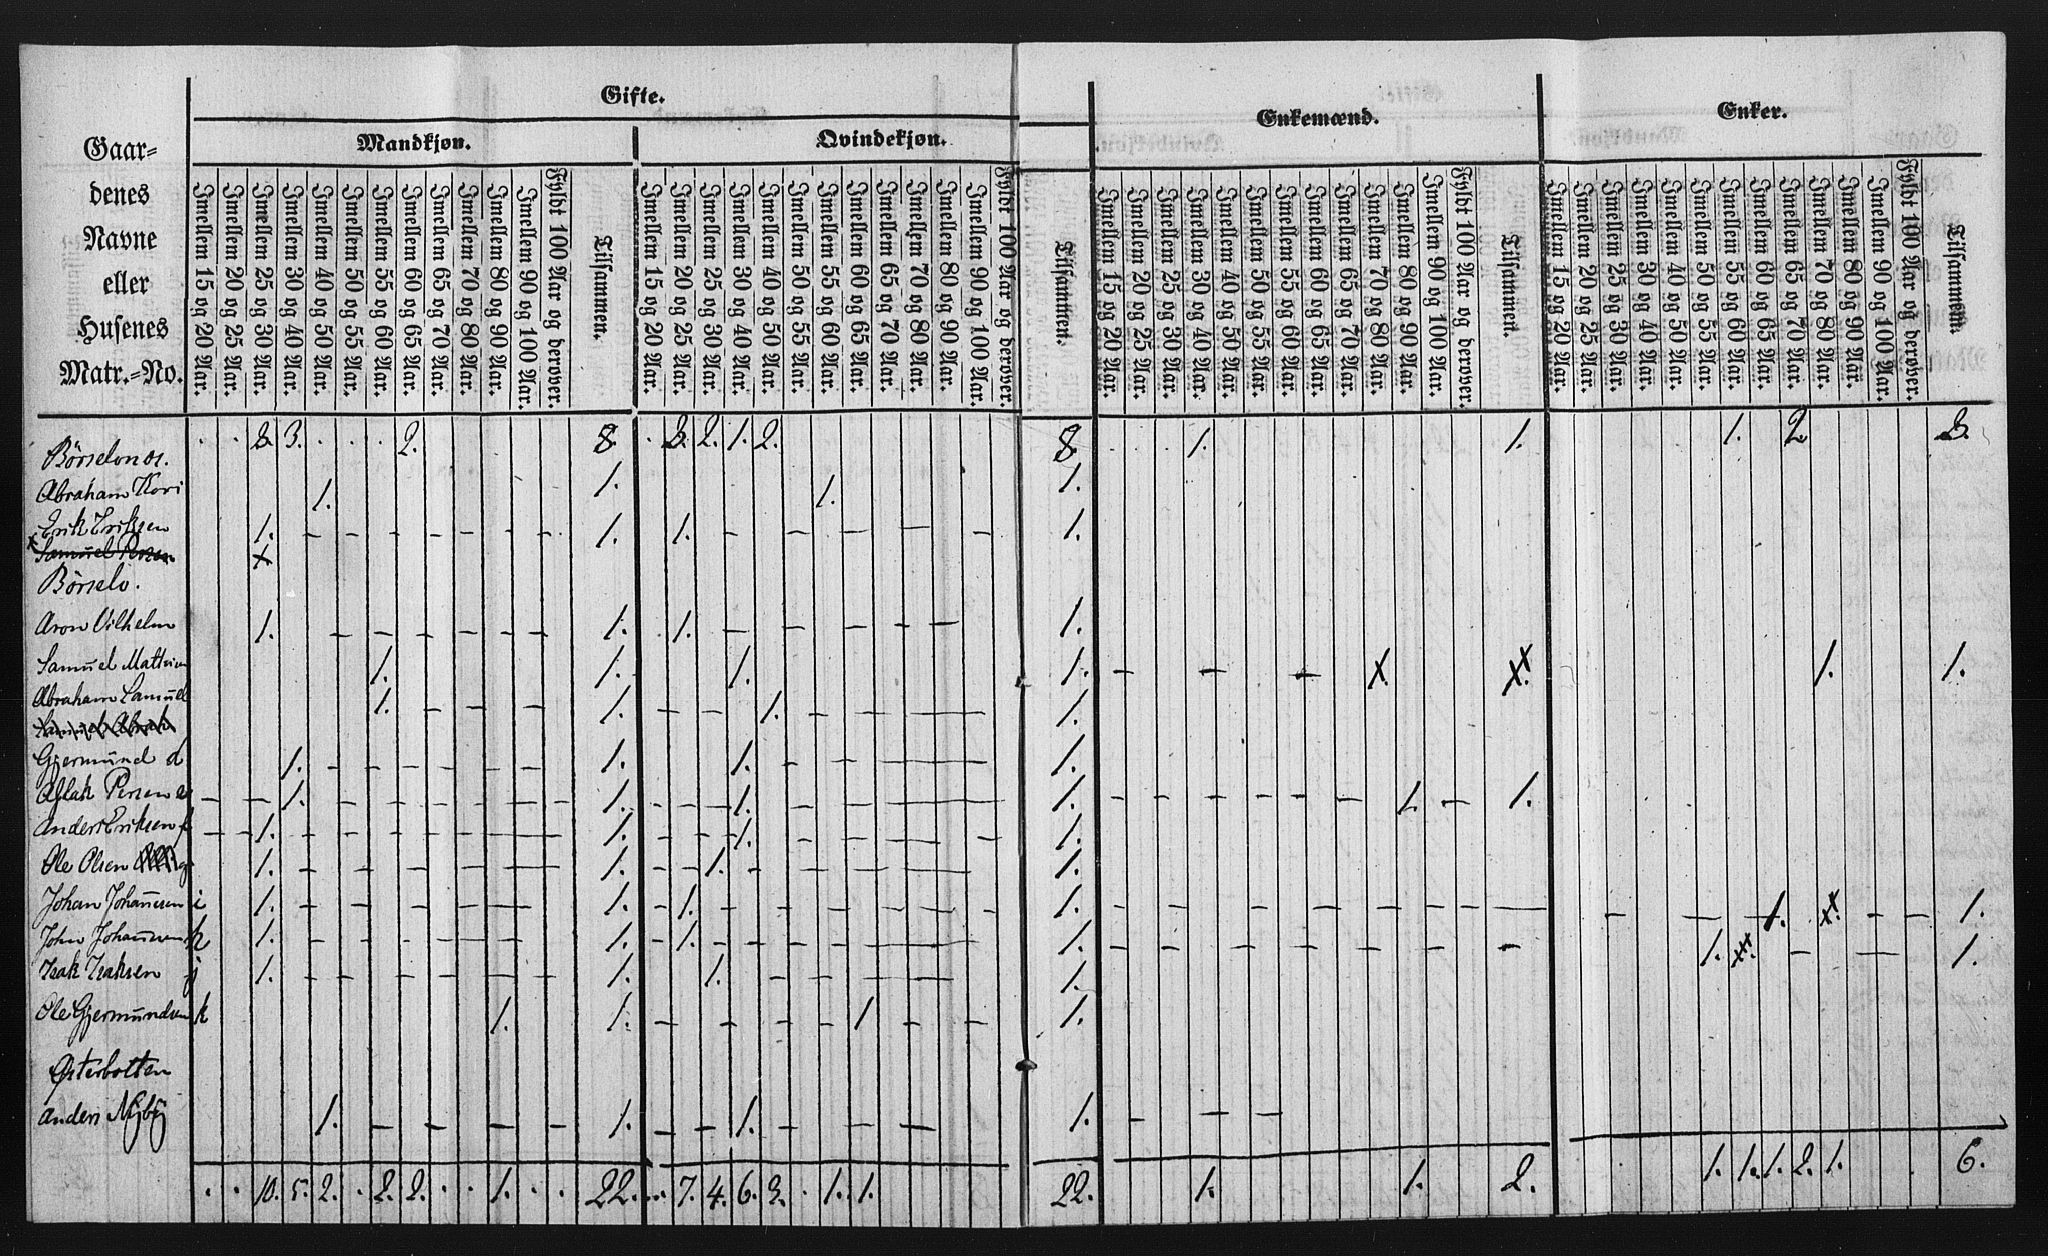 Gifte.
Enkemænd.
Enker.
Mandkjøn.
Qvindekjøn.
Gaar-
denes
Navne
eller
Husenes
Matr.-No.
Imellem 15 og 20 Aar.
Imellem 20 og 25 Aar.
Imellem 25 og 30 Aar.
Imellem 30 og 40 Aar.
Imellem 40 og 50 Aar.
Imellem 50 og 55 Aar.
Imellem 55 og 60 Aar.
Imellem 60 og 65 Aar.
Imellem 65 og 70 Aar.
Imellem 70 og 80 Aar.
Imellem 80 og 90 Aar.
Imellem 90 og 100 Aar.
Fyldt 100 Aar og derover.
Tilsammen.
Imellem 15 og 20 Aar.
Imellem 20 og 25 Aar.
Imellem 25 og 30 Aar.
Imellem 30 og 40 Aar.
Imellem 40 og 50 Aar.
Imellem 50 og 55 Aar.
Imellem 55 og 60 Aar.
Imellem 60 og 65 Aar.
Imellem 65 og 70 Aar.
Imellem 70 og 80 Aar.
Imellem 80 og 90 Aar.
Imellem 90 og 100 Aar.
Fyldt 100 Aar og derover.
Tilsammen.
Imellem 15 og 20 Aar.
Imellem 20 og 25 Aar.
Imellem 25 og 30 Aar.
Imellem 30 og 40 Aar.
Imellem 40 og 50 Aar.
Imellem 50 og 55 Aar.
Imellem 55 og 60 Aar.
Imellem 60 og 65 Aar.
Imellem 65 og 70 Aar.
Imellem 70 og 80 Aar.
Imellem 80 og 90 Aar.
Imellem 90 og 100 Aar.
Fyldt 100 Aar og derover.
Tilsammen.
Imellem 15 og 20 Aar.
Imellem 20 og 25 Aar.
Imellem 25 og 30 Aar.
Imellem 30 og 40 Aar.
Imellem 40 og 50 Aar.
Imellem 50 og 55 Aar.
Imellem 55 og 60 Aar.
Imellem 60 og 65 Aar.
Imellem 65 og 70 Aar.
Imellem 70 og 80 Aar.
Imellem 80 og 90 Aar.
Imellem 90 og 100 Aar.
Fyldt 100 Aar og derover.
Tilsammen.
3. 3. 2. 8. 3. 2. 1. 2. 8. 1. 1. 1. 2 3.
Abraham Kori 1. 1. 1. 1.
Erik Eriksen 1. 1. 1. 1.
x Samuel Persen x
Börselv.
Aron Vilhelm 1. 1. 1. 1.
Samuel 1. 1. 1. 1. x xx 1. 1.
Abraham Samuel 1. 1. 1. 1.
Samuel Abrah
Gjermund d 1. 1. 1. 1.
Aslak Persen e 1. 1. 1. 1. 1. 1.
Anders Eriksen f 1. 1. 1. 1.
Ole Olsen g 1. 1. 1. 1.
Johan Johannesen i 1. 1. 1. 1. 1. xx. 1.
John h 1. 1. 1. 1. 1. xxx. 1.
Isak Isaksen j 1. 1. 1. 1.
Ole Gjermundsen k 1. 1. 1. 1.
Østerbotten
Anders Nÿbÿ 1. 1. 1. 1.
10. 5. 2. 2. 2. 1. 22. 7. 4. 6. 3. 1. 1. 22. 1. 1. 2. 1. 1. 1. 2. 1. 6.